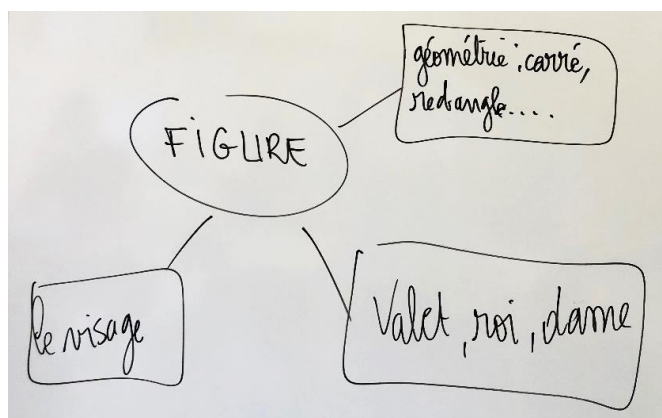 FIGURE
géométrie : carré,
rectangle....
le visage
Valet, roi, dame